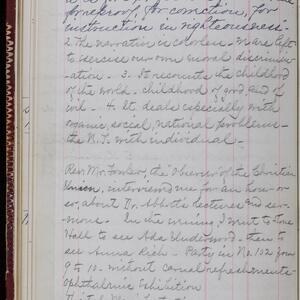 for reproof, for correction, for
instruction in righteousness -
2. The narration is colorless - We are left
to exercise our own moral discrimin-
ation - 3. It recounts the childhood
of the world - childhood of good, and of
evil - 4. It deals especially with
organic, social, national problems -
the N.T. with individual -
Rev. Mr. Fowler, the Observer of the Christian
Union, interviewed me for an hour or
so, about Dr. Abbott's lectures and ser-
mons. In the evening, I went to Stone
Hall to see Ada Underwood - then to
see Anna - Party in No. 102 from
9 to 10 - without casual refreshments -
Exhibition